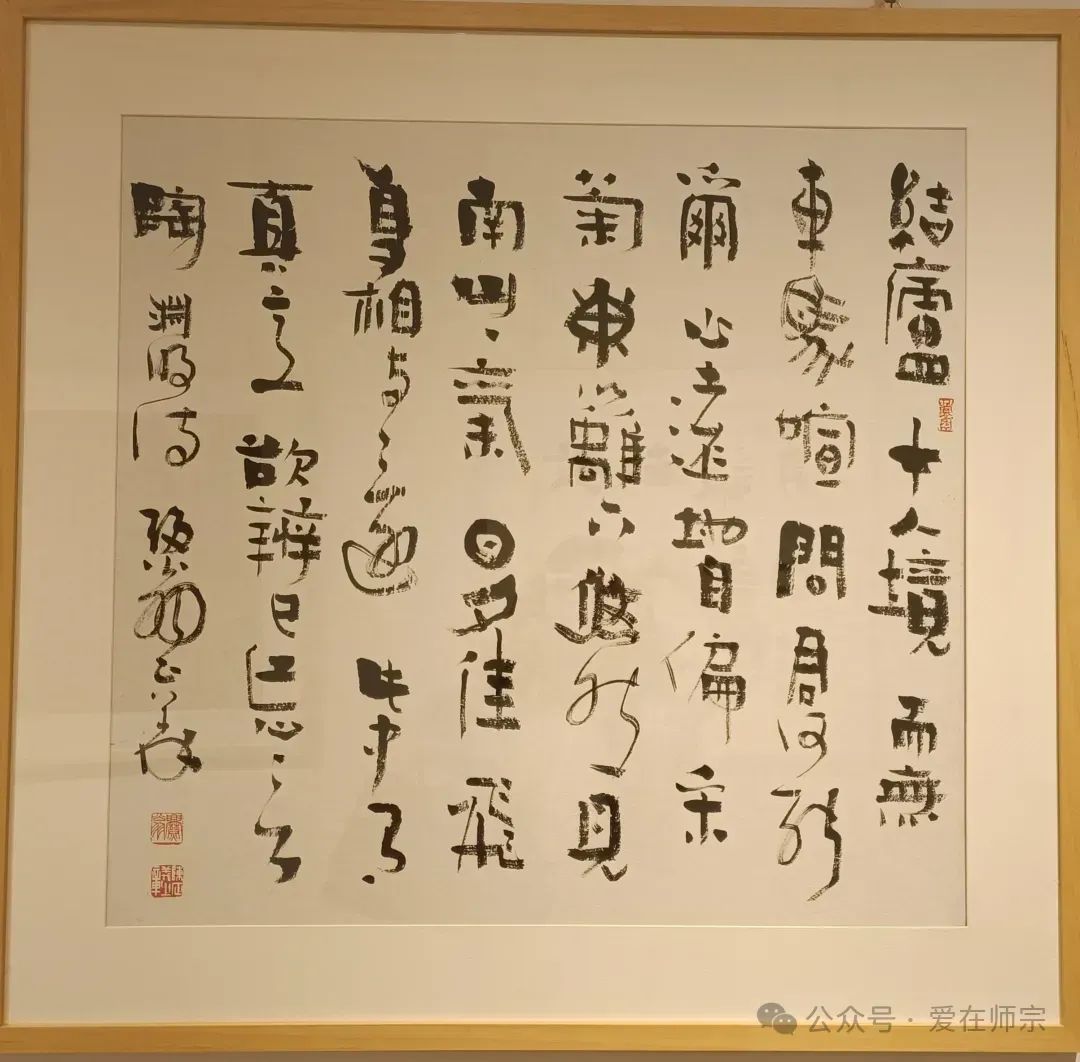 結廬在人境而無
車馬喧問君何能
爾心遠地自偏采
菊東籬下悠然見
南山々氣日夕佳飛
鳥相與還此中有
真意欲辨已忘言
陶淵明詩 翁正義
公众号·爱在师宗